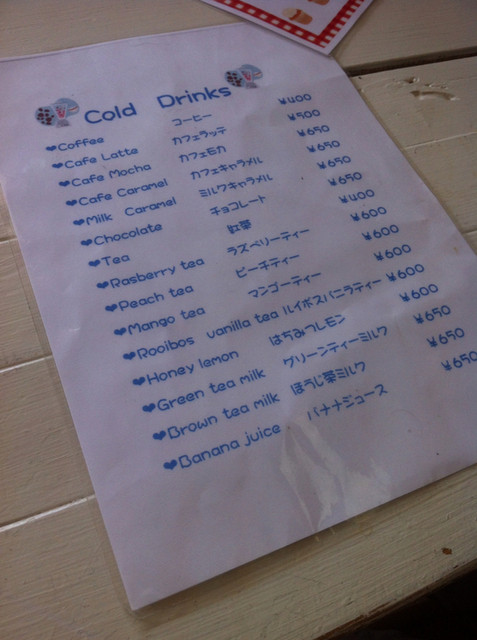 Cold Drinks
❤Coffee コーヒー ¥400
❤Cafe Latte カフェラッテ ¥500
❤Cafe Mocha カフェモカ ¥650
❤Cafe Caramel カフェキャラメル ¥650
❤Milk Caramel ミルクキャラメル ¥650
❤Chocolate チョコレート ¥650
❤Tea 紅茶 ¥400
❤Rasberry tea ラズベリーティー ¥600
❤Peach tea ピーチティー ¥600
❤Mango tea マンゴーティー ¥600
❤Rooibos vanilla tea ルイボスバニラティー ¥600
❤Honey lemon はちみつレモン ¥600
❤Green tea milk グリーンティーミルク ¥650
❤Brown tea milk ほうじ茶ミルク ¥650
❤Banana juice バナナジュース ¥650